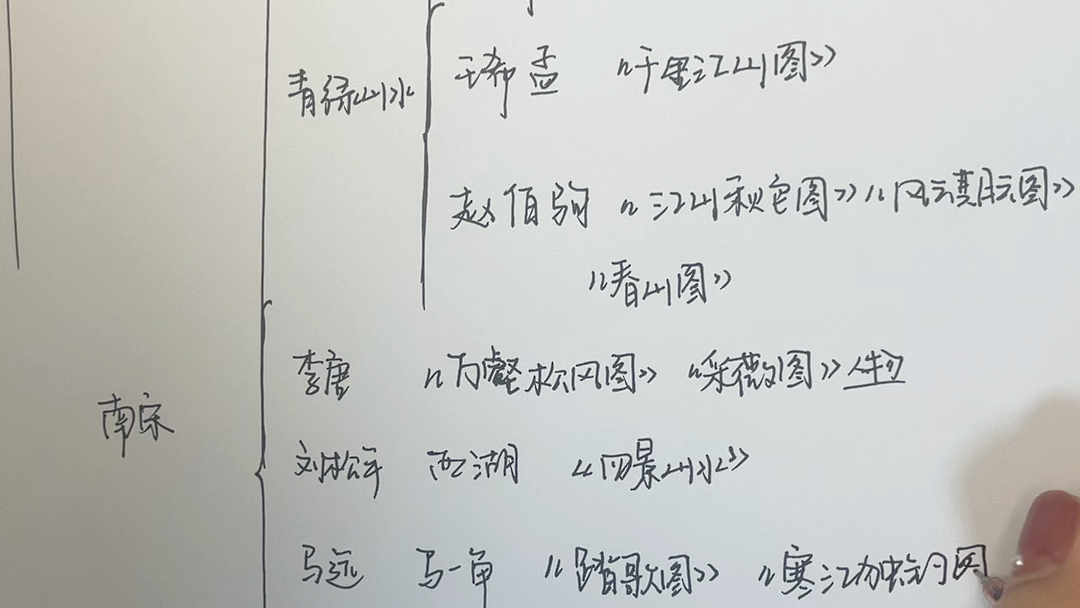 青绿山水
王希孟 《千里江山图》
赵伯驹 《江山秋色图》《风云期会图》
《春山图》
南宋
李唐 《万壑松风图》 《采薇图》人物
刘松年 西湖 《四景山水》
马远 马一角 《踏歌图》 《寒江独钓图